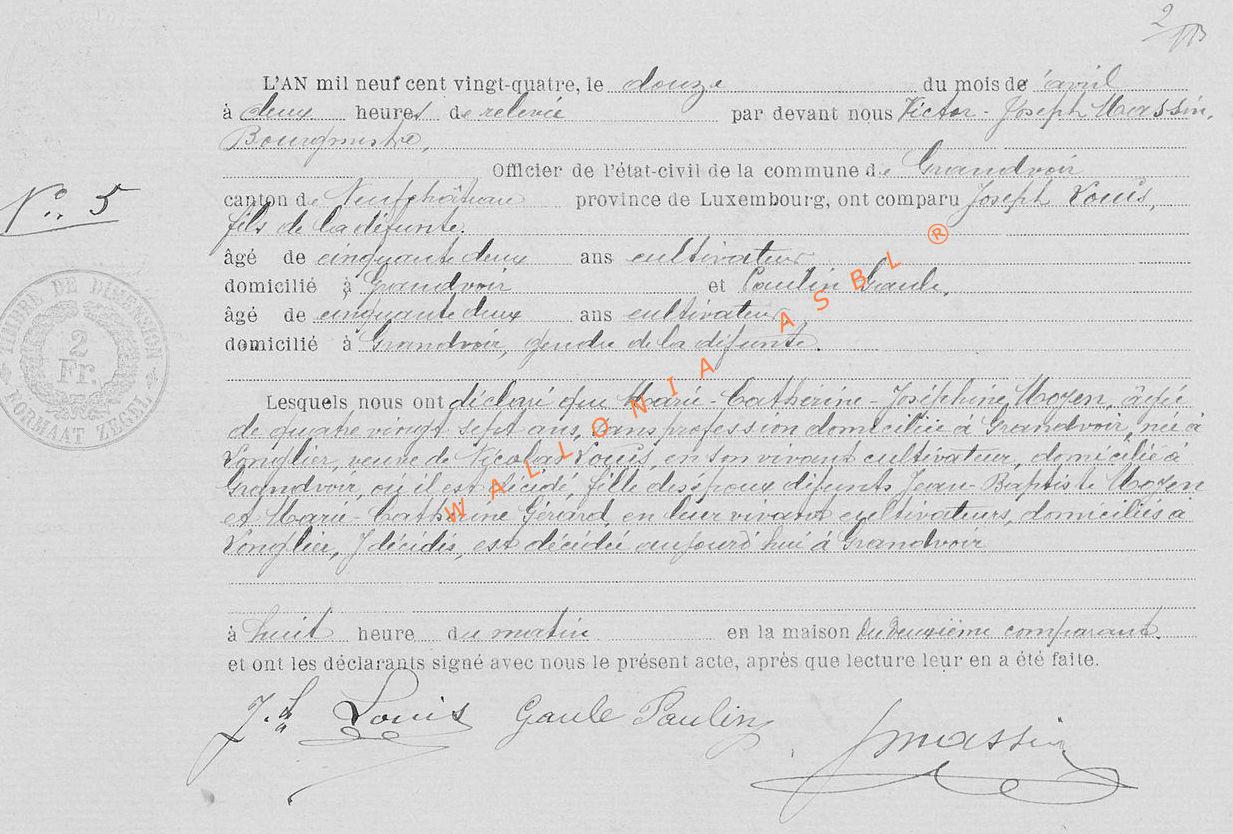 2
L'AN mil neuf cent vingt-quatre, le douze du mois de avril
à deux heures de relevée par devant nous Victor-Joseph Massin,
Bourgmestre,
Officier de l'état-civil de la commune de Grandvoir
N° 5
canton de Neufchâteau province de Luxembourg, ont comparu Joseph Louis,
fils de la défunte.
âgé de cinquante deux ans cultivateur
domicilié à Grandvoir et Paulin Gaule,
âgé de cinquante deux ans cultivateur,
domicilié à Grandvoir, gendre de la défunte.
TIMBRE DE DIMENSION
2
Fr.
FORMAAT ZEGEL
Lesquels nous ont déclaré que Marie-Catherine-Joséphine Mozen, âgée
de quatre vingt sept ans, sans profession domiciliée à Grandvoir, née à
Longlier, veuve de Nicolas Louis, en son vivant cultivateur, domicilié à
Grandvoir, où il est décédé, fille des époux défunts Jean-Baptiste Mozen
et Marie-Catherine Gérard, en leur vivant cultivateurs, domiciliés à
Longlier, y décédés, est décédée aujourd'hui à Grandvoir
à huit heure du matin en la maison du deuxième comparant.
et ont les déclarants signé avec nous le présent acte, après que lecture leur en a été faite.
J. Louis Gaule Paulin
Jmassin
WALLONIA ASBL ®